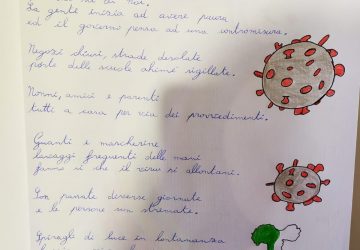 La gente inizia ad avere paura
ed il governo pensa ad una contromisura.
Negozi chiusi, strade desolate
porte delle scuole ahimé sigillate.
Nonni, amici e parenti
tutti a casa per via dei provvedimenti.
Guanti e mascherine
lavaggi frequenti delle mani
fanno sì che il virus si allontani.
Son passate diverse giornate
e le persone son stremate.
Spiragli di luce in lontananza